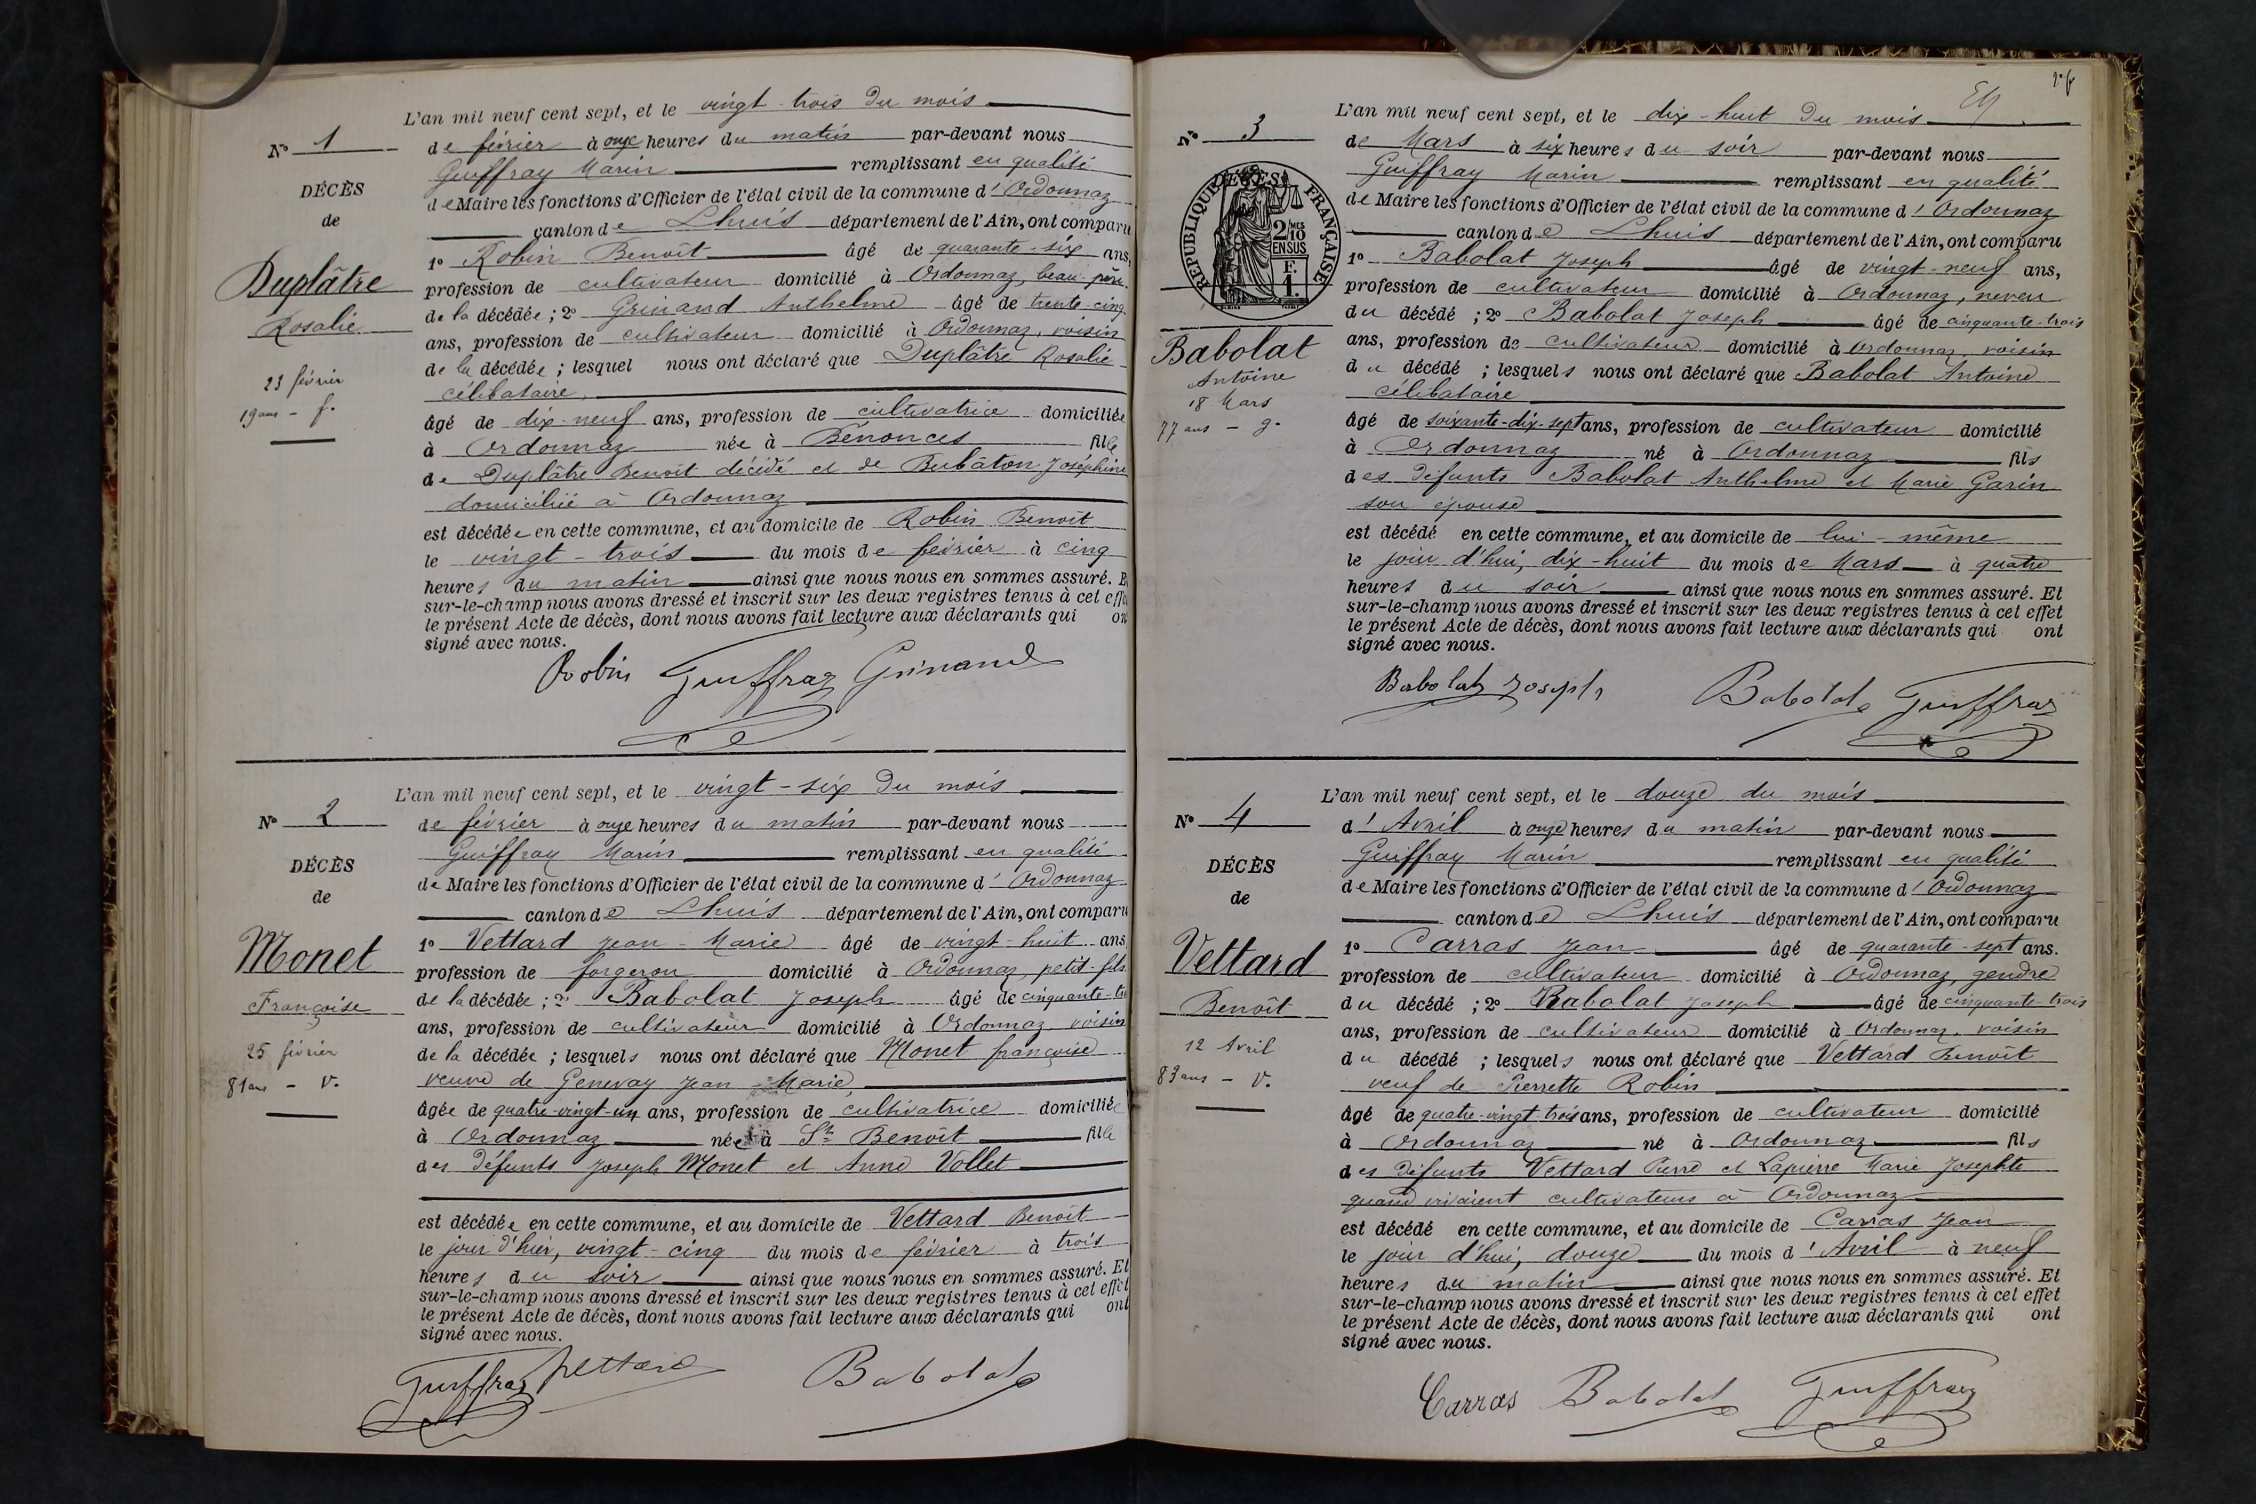 L'an mil neuf cent sept, et le vingt-trois du mois
N° 1
de février à onze heures du matin par-devant nous
Guiffray Marin remplissant en qualité
DÉCÈS
de Maire les fonctions d'Officier de l'état civil de la commune d'Ordonnaz
de
canton de Lhuis département de l'Ain, ont comparu
1° Robin Benoît âgé de quarante-six ans,
Duplâtre
profession de cultivateur domicilié à Ordonnaz, beau-père
Rosalie
de la décédée ; 2° Grinand Anthelme âgé de trente-cinq
ans, profession de cultivateur domicilié à Ordonnaz, voisin
de la décédée ; lesquel nous ont déclaré que Duplâtre Rosalie
23 février
célibataire
19 ans - f.
âgé de dix-neuf ans, profession de cultivatrice domiciliée
à Ordonnaz née à Bénonces fille
de Duplâtre Benoît décédé et de Joséphine
domiciliée à Ordonnaz
est décédée en cette commune, et au domicile de Robin Benoît
le vingt-trois du mois de février à cinq
heures du matin ainsi que nous nous en sommes assuré. E
sur-le-champ nous avons dressé et inscrit sur les deux registres tenus à cet effe
le présent Acte de décès, dont nous avons fait lecture aux déclarants qui on
signé avec nous.
Robin Guiffray Grinand
L'an mil neuf cent sept, et le vingt-six du mois
N° 2
de février à onze heures du matin par-devant nous
Guiffray Marin remplissant en qualité
DÉCÈS
de Maire les fonctions d'Officier de l'état civil de la commune d'Ordonnaz
de
canton de Lhuis département de l'Ain, ont comparu
1° Vettard Jean-Marie âgé de vingt-huit ans
Monet
profession de forgeron domicilié à Ordonnaz, petit-fils
Françoise
de la décédée ; 2° Babolat Joseph âgé de cinquante-tr
ans, profession de cultivateur domicilié à Ordonnaz, voisin
25 février
de la décédée ; lesquels nous ont déclaré que Monet françoise
81 ans - V.
veuve de Genevay Jean-Marie
âgée de quatre-vingt-un ans, profession de cultivatrice domiciliée
à Ordonnaz née à St Benoît fille
des défunts Joseph Monet et Anne Vollet
est décédée en cette commune, et au domicile de Vettard Benoît
le jour d'hier, vingt-cinq du mois de février à trois
heures du soir ainsi que nous nous en sommes assuré. Et
sur-le-champ nous avons dressé et inscrit sur les deux registres tenus à cet effet
le présent Acte de décès, dont nous avons fait lecture aux déclarants qui ont
signé avec nous.
Guiffray Vettard Babolat
L'an mil neuf cent sept, et le dix-huit du mois
N° 3
de Mars à six heures du soir par-devant nous
Guiffray Marin remplissant en qualité
RÉPUBLIQUE FRANÇAISE
2/10MES EN SUS
F. 1.
de Maire les fonctions d'Officier de l'état civil de la commune d'Ordonnaz
canton de Lhuis département de l'Ain, ont comparu
1° Babolat Joseph âgé de vingt-neuf ans,
profession de cultivateur domicilié à Ordonnaz, neveu
du décédé ; 2° Babolat Joseph âgé de cinquante-trois
Babolat
ans, profession de cultivateur domicilié à Ordonnaz, voisin
Antoine
du décédé ; lesquels nous ont déclaré que Babolat Antoine
18 Mars
célibataire
77 ans - g.
âgé de soixante-dix-sept ans, profession de cultivateur domicilié
à Ordonnaz né à Ordonnaz fils
des défunts Babolat Anthelme et Marie Garin
son épouse
est décédé en cette commune, et au domicile de lui-même
le jour d'hui, dix-huit du mois de Mars à quatre
heures du soir ainsi que nous nous en sommes assuré. Et
sur-le-champ nous avons dressé et inscrit sur les deux registres tenus à cet effet
le présent Acte de décès, dont nous avons fait lecture aux déclarants qui ont
signé avec nous.
Babolat Joseph Babolat Guiffray
L'an mil neuf cent sept, et le douze du mois
N° 4
d'Avril à onze heures du matin par-devant nous
Guiffray Marin remplissant en qualité
DÉCÈS
de Maire les fonctions d'Officier de l'état civil de la commune d'Ordonnaz
de
canton de Lhuis département de l'Ain, ont comparu
1° Carras Jean âgé de quarante-sept ans.
Vettard
profession de cultivateur domicilié à Ordonnaz, gendre
Benoît
du décédé ; 2° Babolat Joseph âgé de cinquante-trois
ans, profession de cultivateur domicilié à Ordonnaz, voisin
12 Avril
du décédé ; lesquels nous ont déclaré que Vettard Benoît
83 ans - V.
veuf de Pierrette Robin
âgé de quatre-vingt-trois ans, profession de cultivateur domicilié
à Ordonnaz né à Ordonnaz fils
des défunts Vettard Pierre et Lapierre Marie Josephte
quand vivaient cultivateurs à Ordonnaz
est décédé en cette commune, et au domicile de Carras Jean
le jour d'hui, douze du mois d'Avril à neuf
heures du matin ainsi que nous nous en sommes assuré. Et
sur-le-champ nous avons dressé et inscrit sur les deux registres tenus à cet effet
le présent Acte de décès, dont nous avons fait lecture aux déclarants qui ont
signé avec nous.
Carras Babolat Guiffray